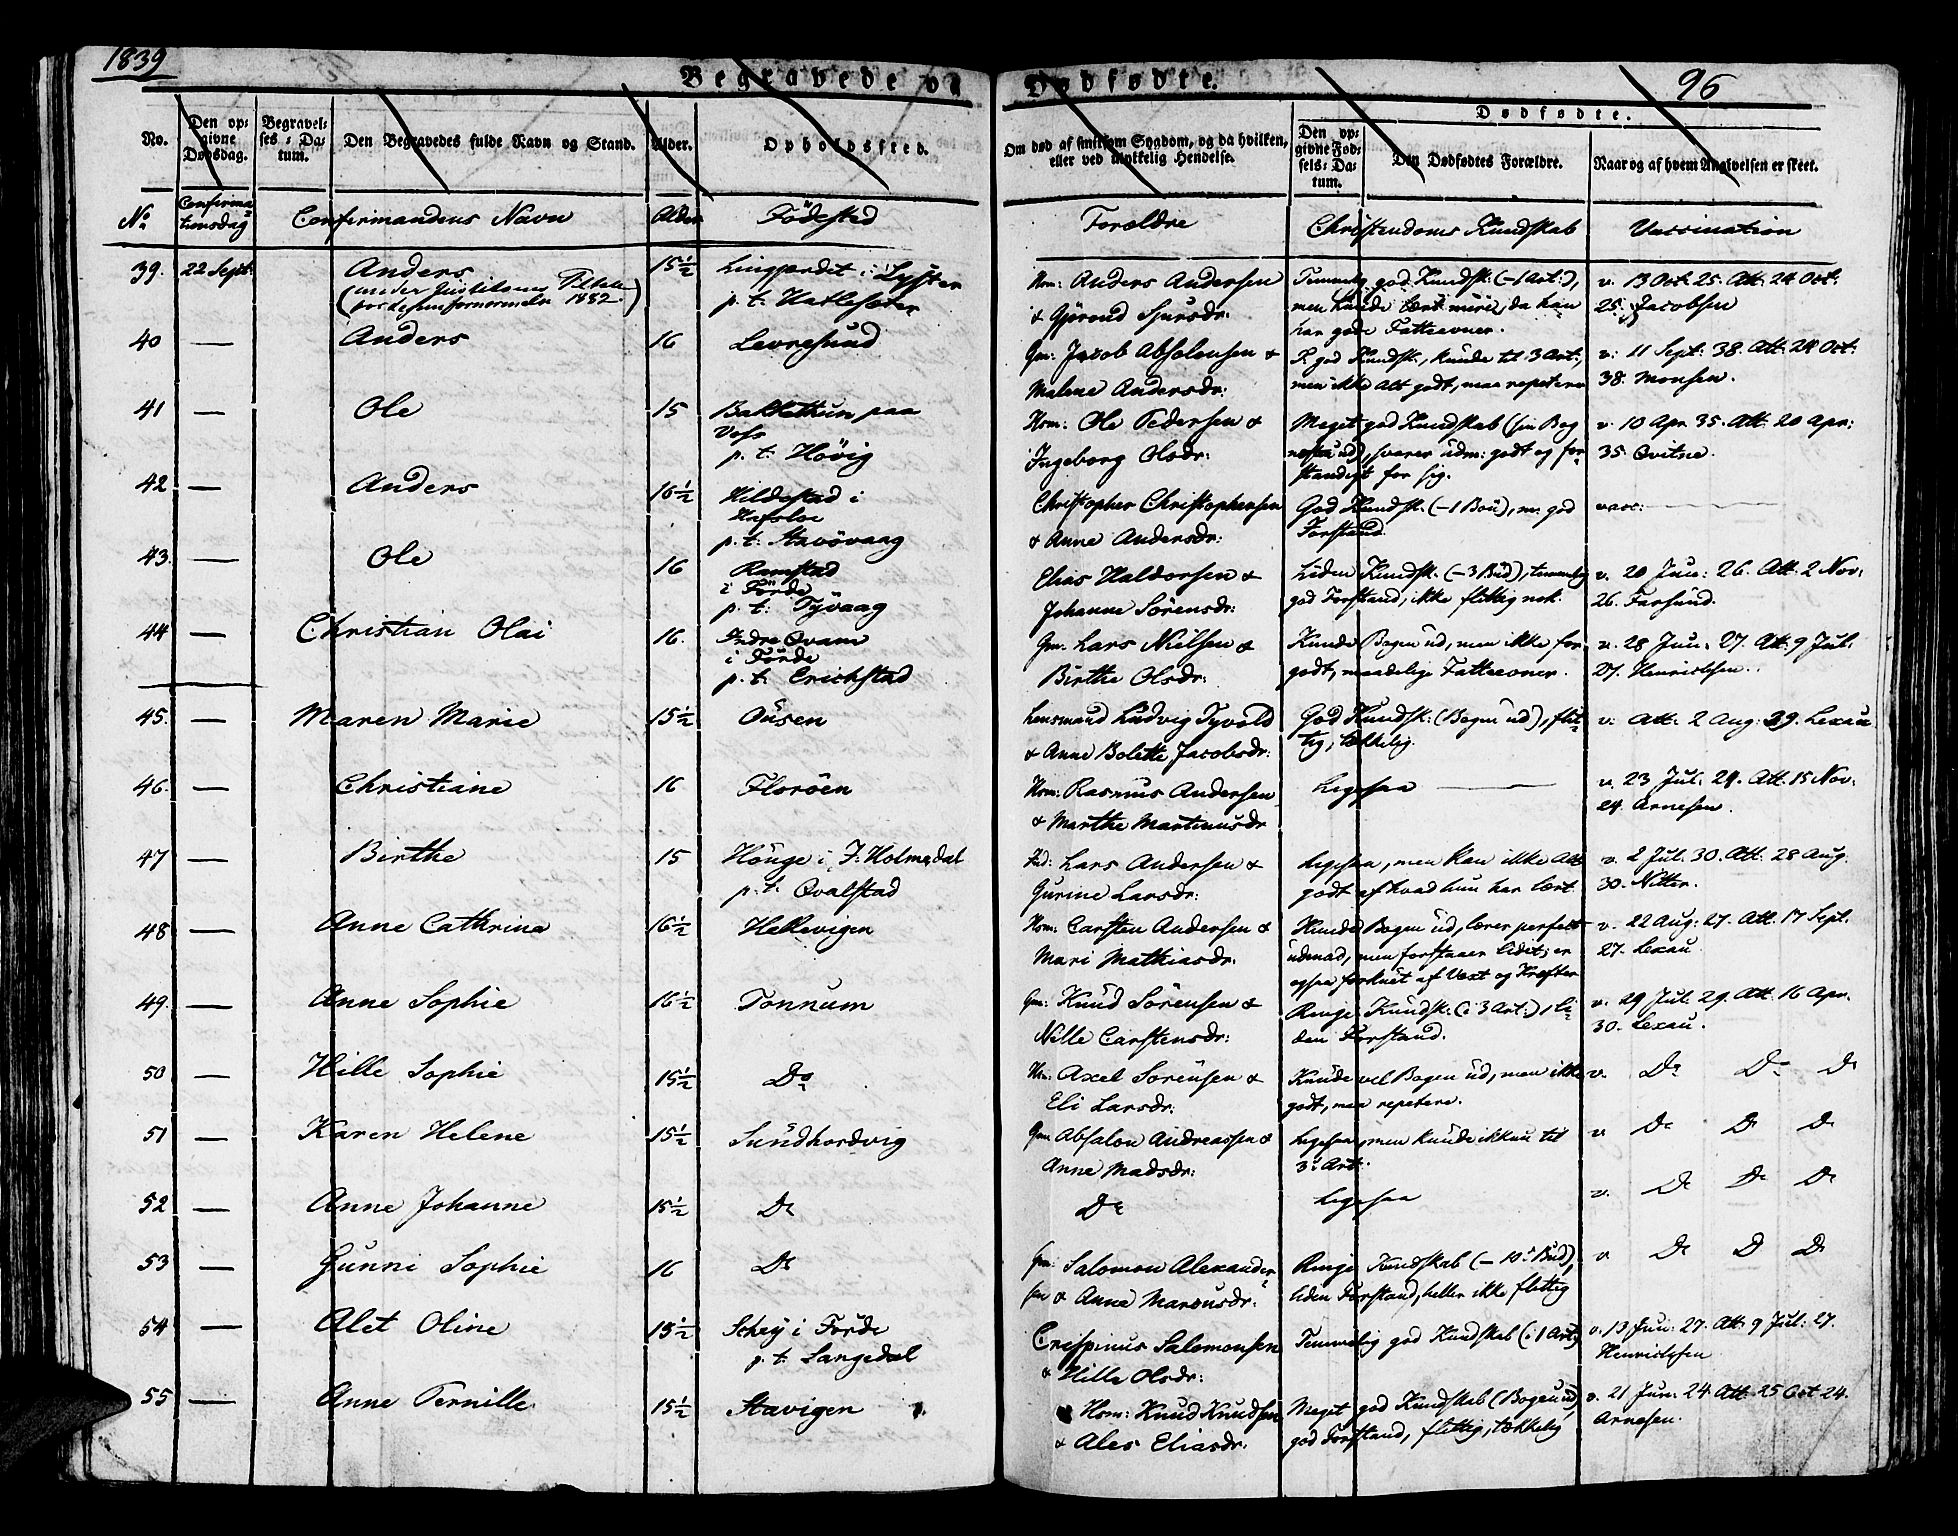 1839
96
Begravede og Dødfødte.
No.
Den opgivne Dødsdag.
Begravelses-Datum.
Den Begravedes fulde Navn og Stand.
Alder.
Opholdssted.
Om død af smitsom Sygdom, og da hvilken, eller ved ulykkelig Hendelse.
Dødfødte.
Den opgivne Fødsels-Datum.
Den Dødfødtes Forældre.
Naar og af hvem Angivelsen er skeet.
No Confirmationsdag Confirmandens Navn Alder Födested Forældre Christendoms Kundskab Vaccination
39. 22 Sept: Anders 15½ i Lyster
p. t:
Hom: Anders Andersen
& Gjörond Sjursdr:
Temmelig god Kundsk: (-1 Art:),
men kunde lært mere, da han
har gode Fatteevner.
v. 13 Oct. 25. Att. 24 Oct:
25. Jacobsen
40 — Anders 16 Levresund
Gm: Jacob Absalonsen &
Malene Andersdr:
god Kundsk:, kunde til 3 Art:,
men ikke Alt godt, maa repetere
v: 11 Sept: 38. Att. 24 Oct:
38. Monsen.
41 — Ole 15 Bakkethun paa
Voss
p. t: Hövig
Hom: Ole Pedersen &
Ingeborg Olsdr:
Meget god Kundskab (sin Bog
ud), svarer udm: godt og for-
standigt for sig.
v. 10 Apr. 35. Att. 20 Apr:
35. Qvitne.
42 — Anders 16½ Hildestad i
Hafsloe
p. t: Stavövaag
Christopher Christophersen
& Anne Andersdr:
God Kundsk: (-1 Bön), m. god
Forstand.
vacc: —
43. — Ole 16 Ramstad
i Förde
p. t: Tyvaag
Elias Haldorsen &
Johanne Sörensdr:
Liden Kundsk: (-3 Bud), temmelig
god Forstand, ikke flittig nok.
v. 20 Jun: 26. Att. 2 Nov:
26. Farsund.
44 — Christian Olai 16. Indre Qvam
i Förde
p. t: Erichstad
Gm: Lars Nielsen &
Birthe Olsdr:
Kunde Bogen ud, men ikke for
godt, maadelige Fatteevner.
v. 28 Jun: 27. Att. 9 Jul.
27. Henrichsen.
45. — Maren Marie 15½ Ousen
Lensmand Ludvig Tyvold
& Anne Bolette Jacobsdr:
God Kundsk: (Bogen ud), flit-
tig, tækkelig.
v. Att. 2 Aug: 39. Lexau
46. — Christiane 16 Floröen
Hom: Rasmus Andersen
& Marthe Martinusdr
Ligesaa —
v. 23 Jul: 24. Att. 15 Nov:
24. Arnesen.
47 — Birthe 15 Höuge i J: Holmedal
p. t. Qvalstad
Ind: Lars Andersen &
Gurine Larsdr:
Ligesaa, men kan ikke Alt
godt af hvad hun har lært.
v. 2 Jul: 30. Att: 28 Aug.
30. Nitter.
48 — Anne Cathrina 16½ Hellevigen
Hom: Carsten Andersen &
Mari Mathiasdr:
Kunde Bogen ud, lærer perfekt
udenad, men forstaaer lidet; er
ogsaa forknut af Vext og Kræfter
v. 22 Aug: 27. Att. 17 Sept.
27. Lexau.
49. — Anne Sophie 16½ Tonnum
Gm: Knud Sörensen &
Nille Carstensdr:
Ringe Kundsk: (i 3 Art:), li-
den Forstand.
v. 29 Jul: 29. Att. 16 Apr.
30. Lexau.
50 — Hille Sophie 15½ Do
Hm: Axel Sörensen &
Eli Larsdr:
Kunde vel Bogen ud, men ikke
godt, maa repetere.
v. Do Do Do
51 — Karen Helene 15½ Sundhordvig
Gm Absalon Andreassen &
Anne Madsdr:
Ligesaa, men kunde ikkun til
3: Art:
v Do Do Do
52 — Anne Johanne 15½ Do
Do
Ligesaa
v. Do Do Do
53 — Gunni Sophie 16 Do
Gm: Salomon Alexander-
sen & Anne Marcusdr:
Ringe Kundskab (- 10: Bud),
liden Forstand, heller ikke flittig
v Do D Do
54 — Alet Oline 15½ Schey i Förde
p. t: Langedal
Crispinus Salomonsen
& Hille Olsdr:
Temmelig god Kundskab (i 1 Art:)
v. 13 Jun: 27. Att. 9 Jul: 27.
Henrichsen
55 — Anne Pernille 15½ Stavigen
Hom: Knud Knudsen
& Ales Eliasdr:
Meget god Kundskab (Bogen ud),
god Forstand, flittig, tækkelig
v. 21 Jun: 24 Att. 25 Oct 24.
Arnesen.